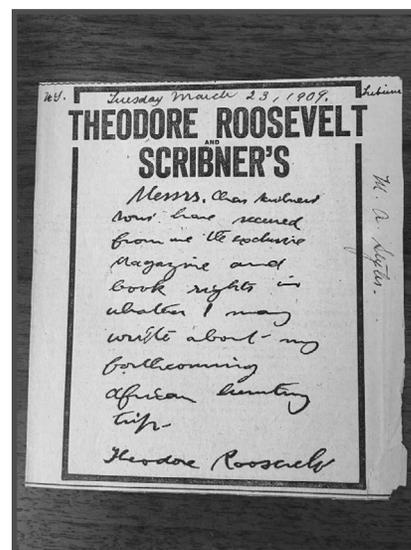 N.Y. Tuesday March 23, 1909. Tribune
THEODORE ROOSEVELT
AND
SCRIBNER'S
Messrs. Chas Scribners
Sons have secured
from me the exclusive
magazine and
book rights in
whatever I may
write about my
forthcoming
African hunting
trip -
Theodore Roosevelt
M. A.